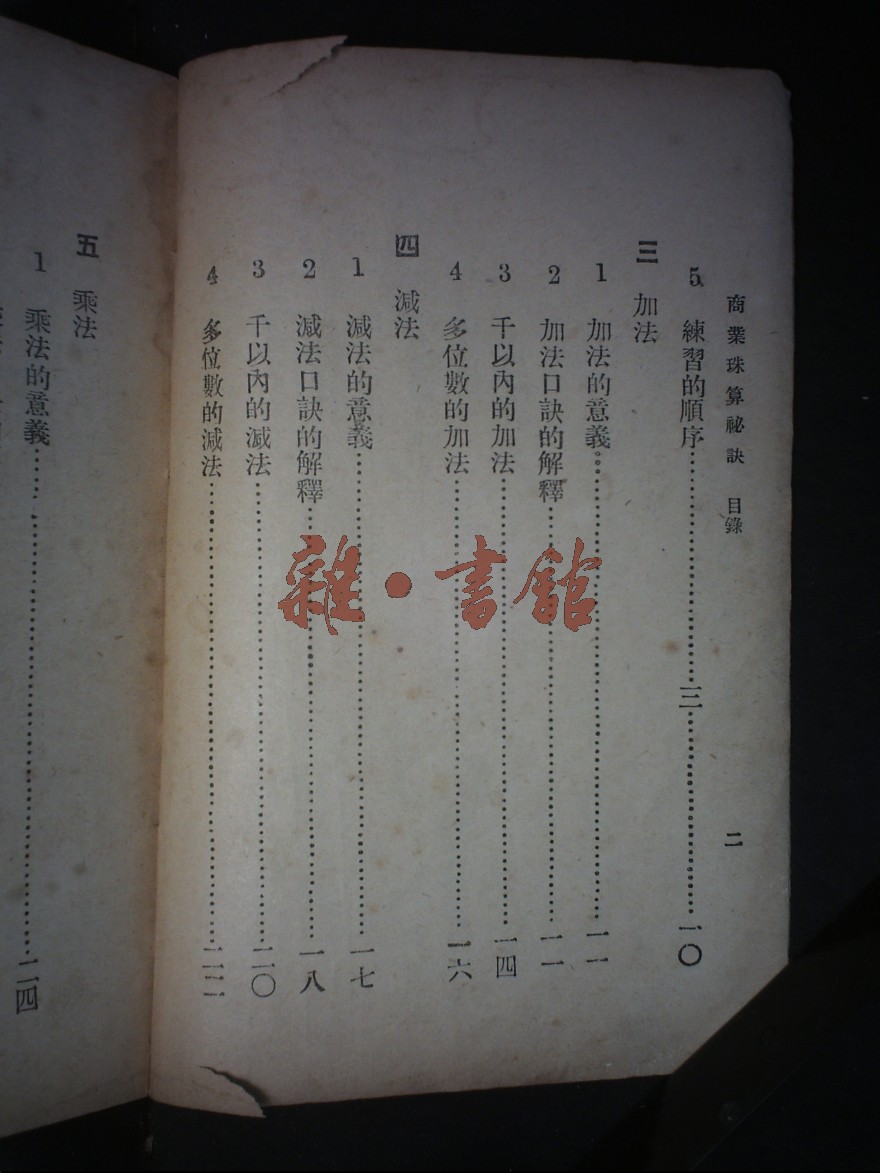 商業珠算祕訣 目錄 二
5 練習的順序……三……一〇
三 加法
1 加法的意義……一一
2 加法口訣的解釋……一一
3 千以內的加法……一四
4 多位數的加法……一六
四 減法
1 減法的意義……一七
2 減法口訣的解釋……一八
3 千以內的減法……二〇
4 多位數的減法……二二
五 乘法
1 乘法的意義……二四
雜·書館